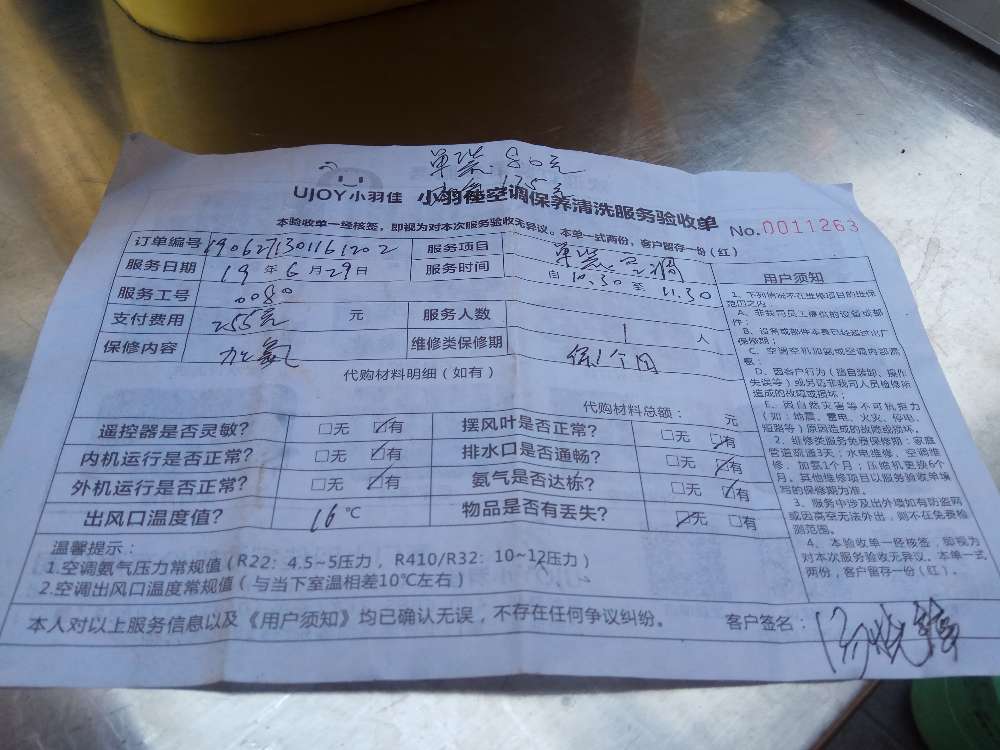 单装80元
175元
UJOY小羽佳 小羽佳空调保养清洗服务验收单
No.0011263
本验收单一经核签，即视为对本次服务验收无异议。本单一式两份，客户留存一份（红）
订单编号 服务项目 单装
服务日期 19年6月29日 服务时间 自10.30至11.30
服务工号 0080
支付费用 255元 元 服务人数 1 人
保修内容 加氟 维修类保修期 保1个月
代购材料明细（如有）
代购材料总额： 元
遥控器是否灵敏？ □无 ☑有 摆风叶是否正常？ □无 ☑有
内机运行是否正常？ □无 ☑有 排水口是否通畅？ □无 ☑有
外机运行是否正常？ □无 ☑有 氨气是否达标？ □无 ☑有
出风口温度值？ 16℃ 物品是否有丢失？ ☑无 □有
温馨提示：
1.空调氨气压力常规值（R22：4.5~5压力，R410/R32：10~12压力）
2.空调出风口温度常规值（与当下室温相差10℃左右）
本人对以上服务信息以及《用户须知》均已确认无误，不存在任何争议纠纷。 客户签名：
用户须知
1、下列情况不在维修项目的维保
范围之内：
A、非我司员工提供的设备或部
件；
B、设备或部件本身已经超过出厂
保修期；
D、因客户行为（擅自装卸、操作
失误等）或另请非我司人员检修所
造成的故障或损坏；
E、因自然灾害等不可抗拒力
（如：地震、雷电、火灾、停电、
短路等）原因造成的故障或损坏。
2、维修类服务免费保修期：家庭
管道疏通3天；水电维修、空调维
修、加氨1个月；压缩机更换6个
月。其他维修项目以服务验收单填
写的保修期为准。
3、服务中涉及出外墙如有防盗网
或因高空无法外出，则不在免费检
测范围。
4、本验收单一经核签，即视为
对本次服务验收无异议。本单一式
两份，客户留存一份（红）。